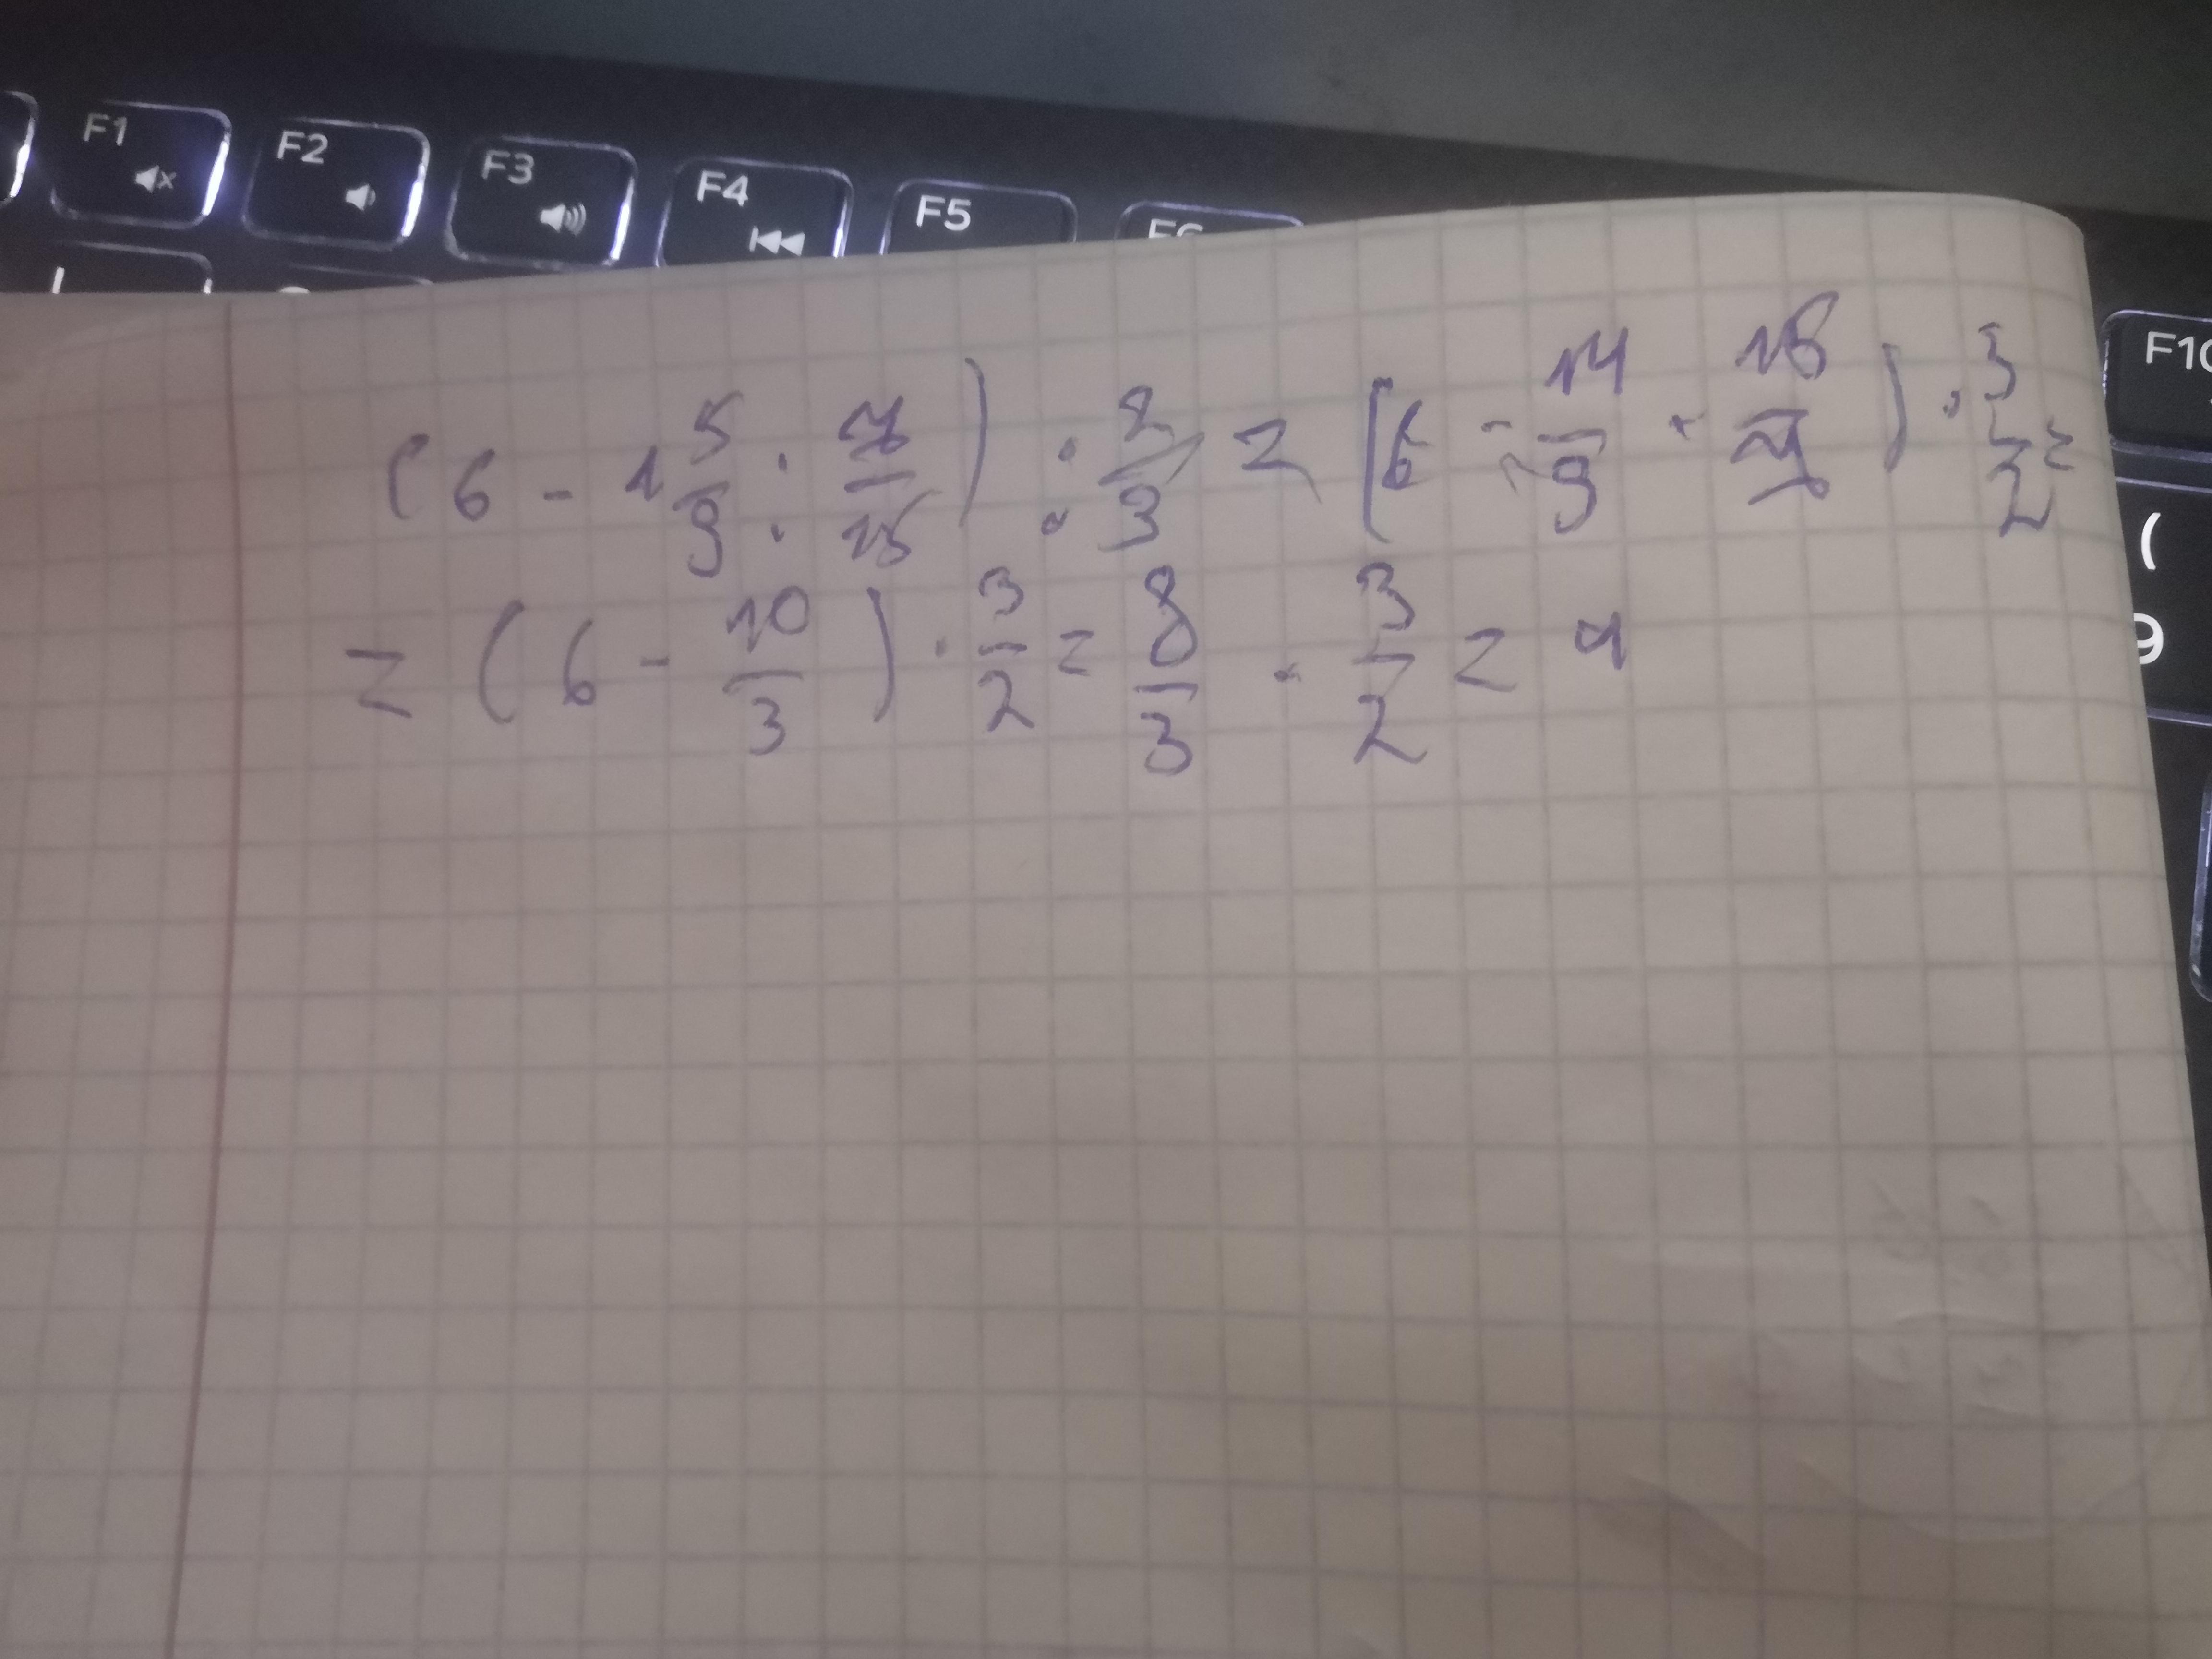 F1 F2 F3 F4 F5 F6
F10
(6 - 1 5/9 : 7/15) : 2/3 = (6 - 14/9 · 15/7) · 3/2 =
= (6 - 10/3) · 3/2 = 8/3 · 3/2 = 4
(
9